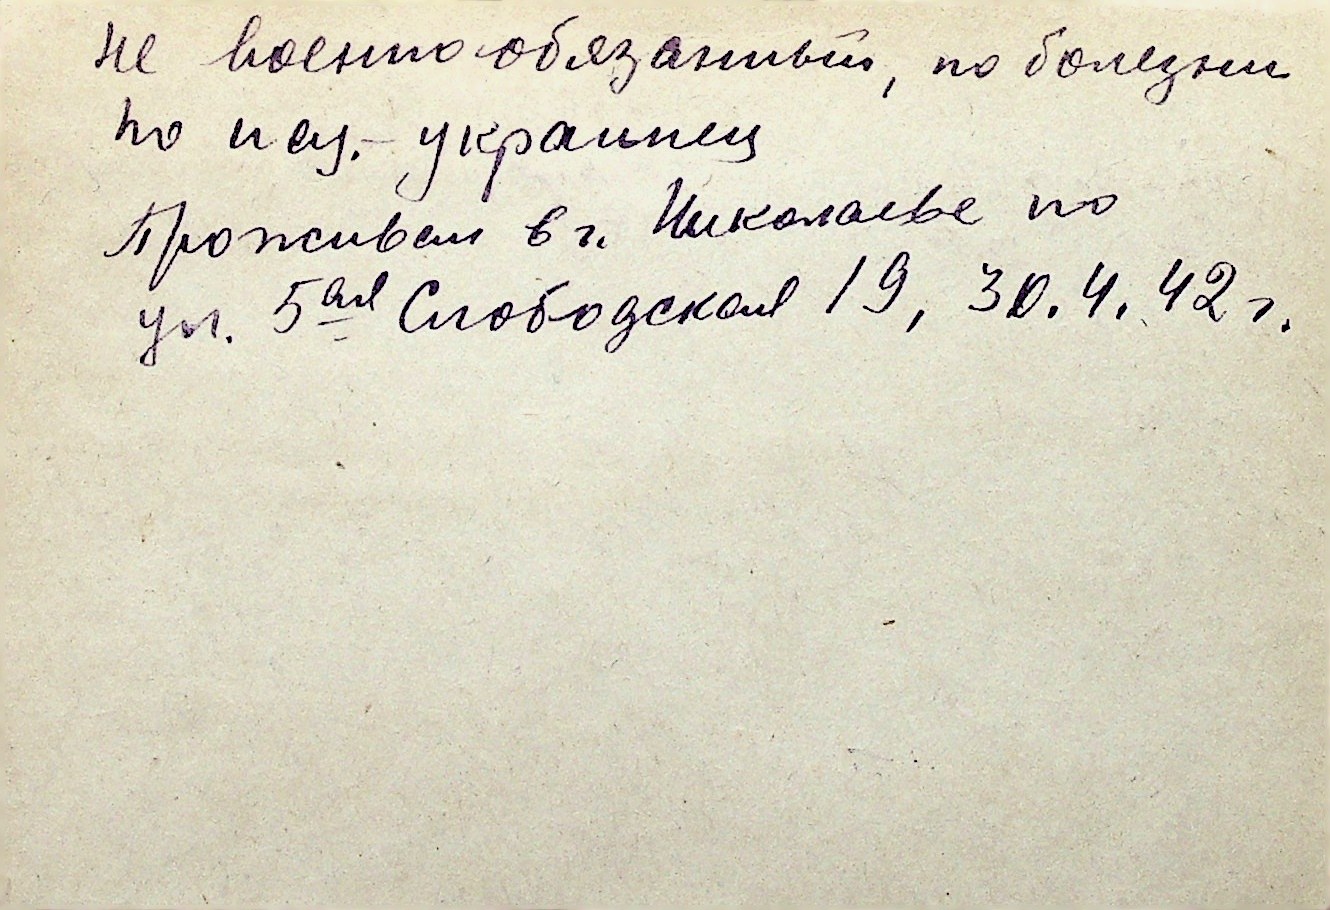 не военнообязанный, по болезни
по нац. – украинец
Проживал в г. Николаеве по
ул. 5ая Слободская 19, 30.4.42 г.